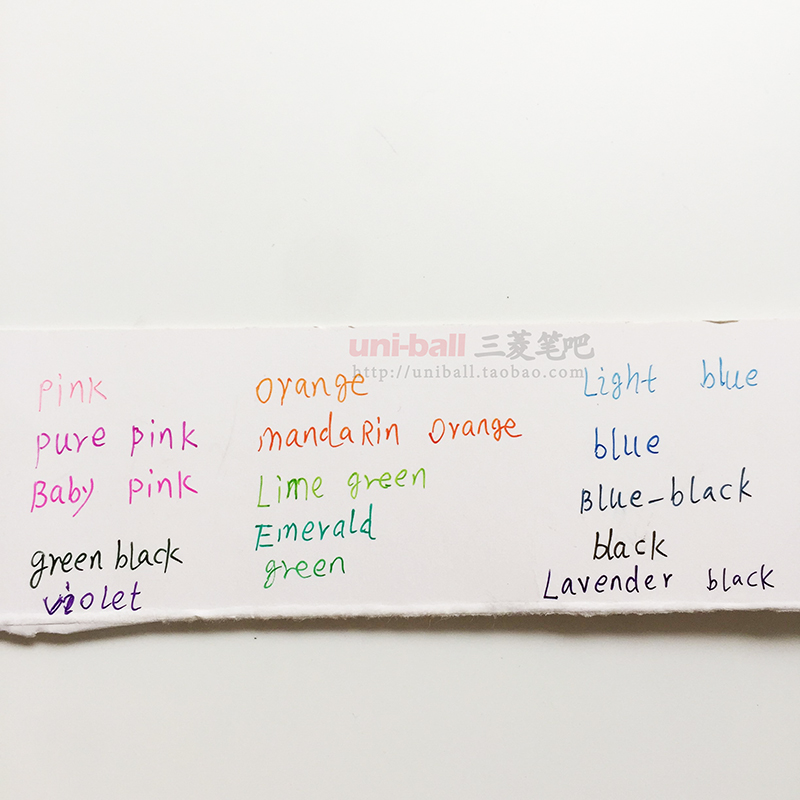 uni-ball 三菱笔吧
http://uniball.taobao.com
pink
pure pink
Baby pink
green black
violet
orange
mandaRin orange
Lime green
Emerald
green
Light blue
blue
Blue-black
black
Lavender black